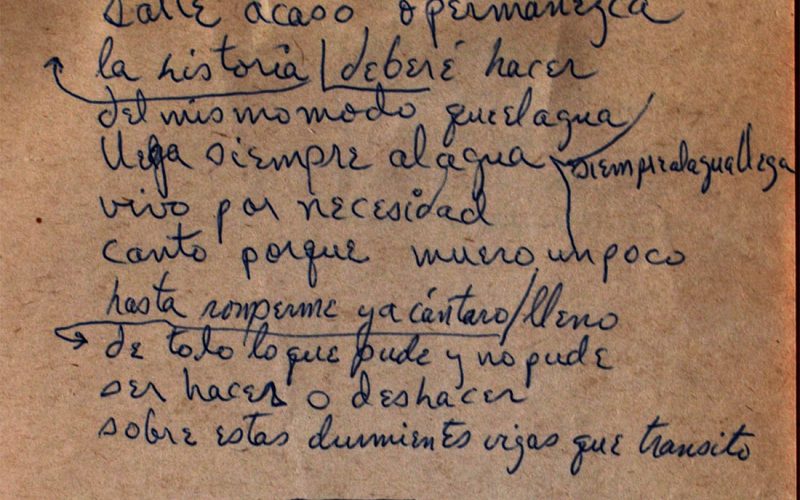 salte acaso o permanezca
la historia deberé hacer
del mismo modo que el agua
llega siempre al agua siempre al agua llega
vivo por necesidad
canto porque muero un poco
hasta romperme ya cántaro/lleno
de todo lo que pude y no pude
ser hacer o deshacer
sobre estas durmientes vigas que transito